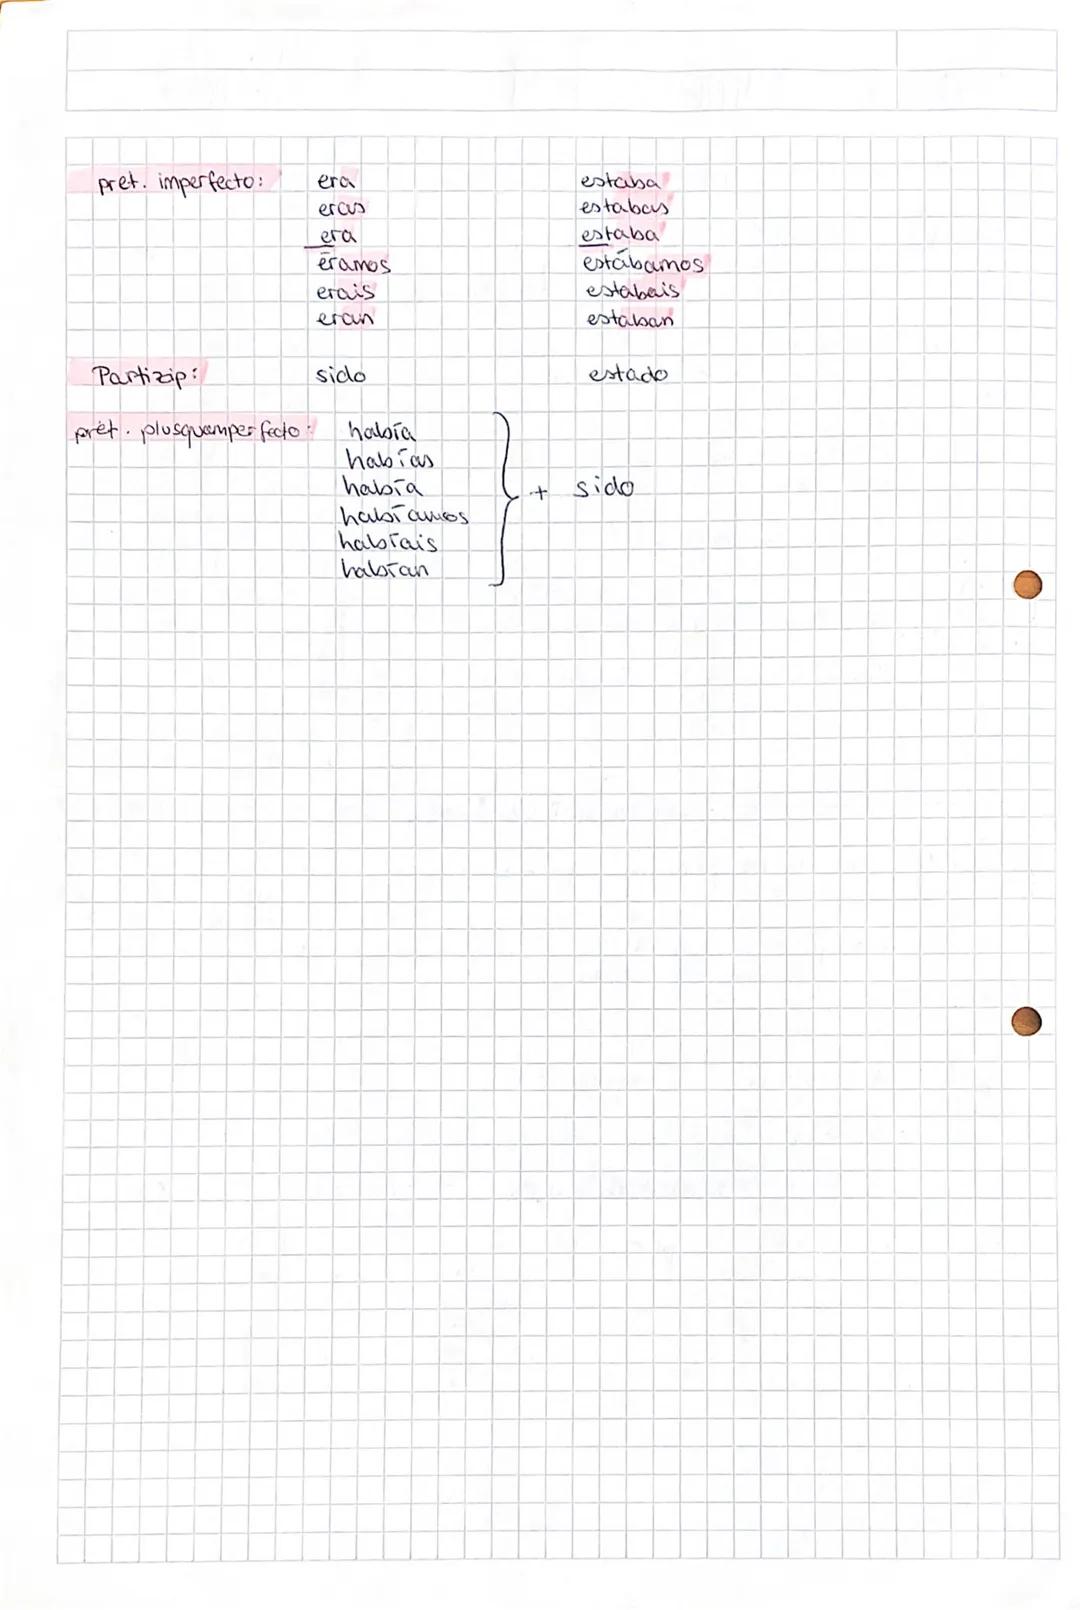 pret. imperfecto: era estaba
eras estabas
era estaba
éramos estábamos
erais estabais
eran estaban
Partizip: sido estado
prét. plusquamperfecto: había
habías
había + sido
habíamos
habíais
habían